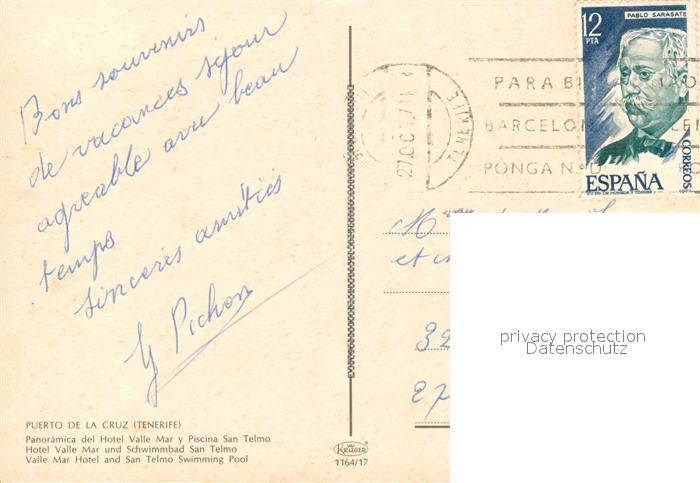 Bons souvenirs
de vacances séjour
agréable avec beau
temps
sincères amitiés
Y Pichon
PUERTO DE LA CRUZ (TENERIFE)
Panorámica del Hotel Valle Mar y Piscina San Telmo
Hotel Valle Mar und Schwimmbad San Telmo
Valle Mar Hotel and San Telmo Swimming Pool
KRÜGER
1164/17
12
PTA
PABLO SARASATE
CORREOS
ESPAÑA
PARA
BARCELON
PONGA N.º D
27.OC
TENERIFE
et
privacy protection
Datenschutz